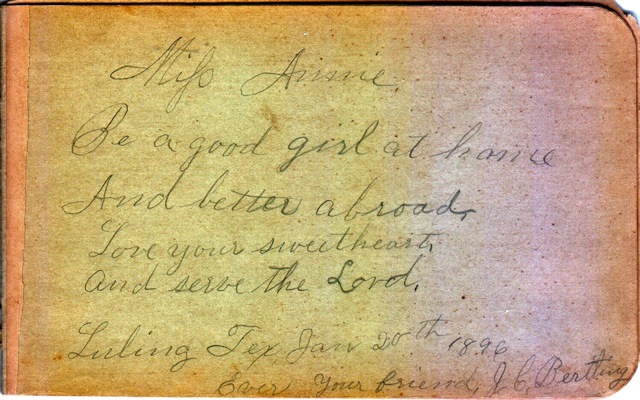 Miss Annie,
Be a good girl at home
And better abroad,
Love your sweetheart,
And serve the Lord.
Luling Tex Jan 20th 1896
Ever your friend, J. C. Bertling